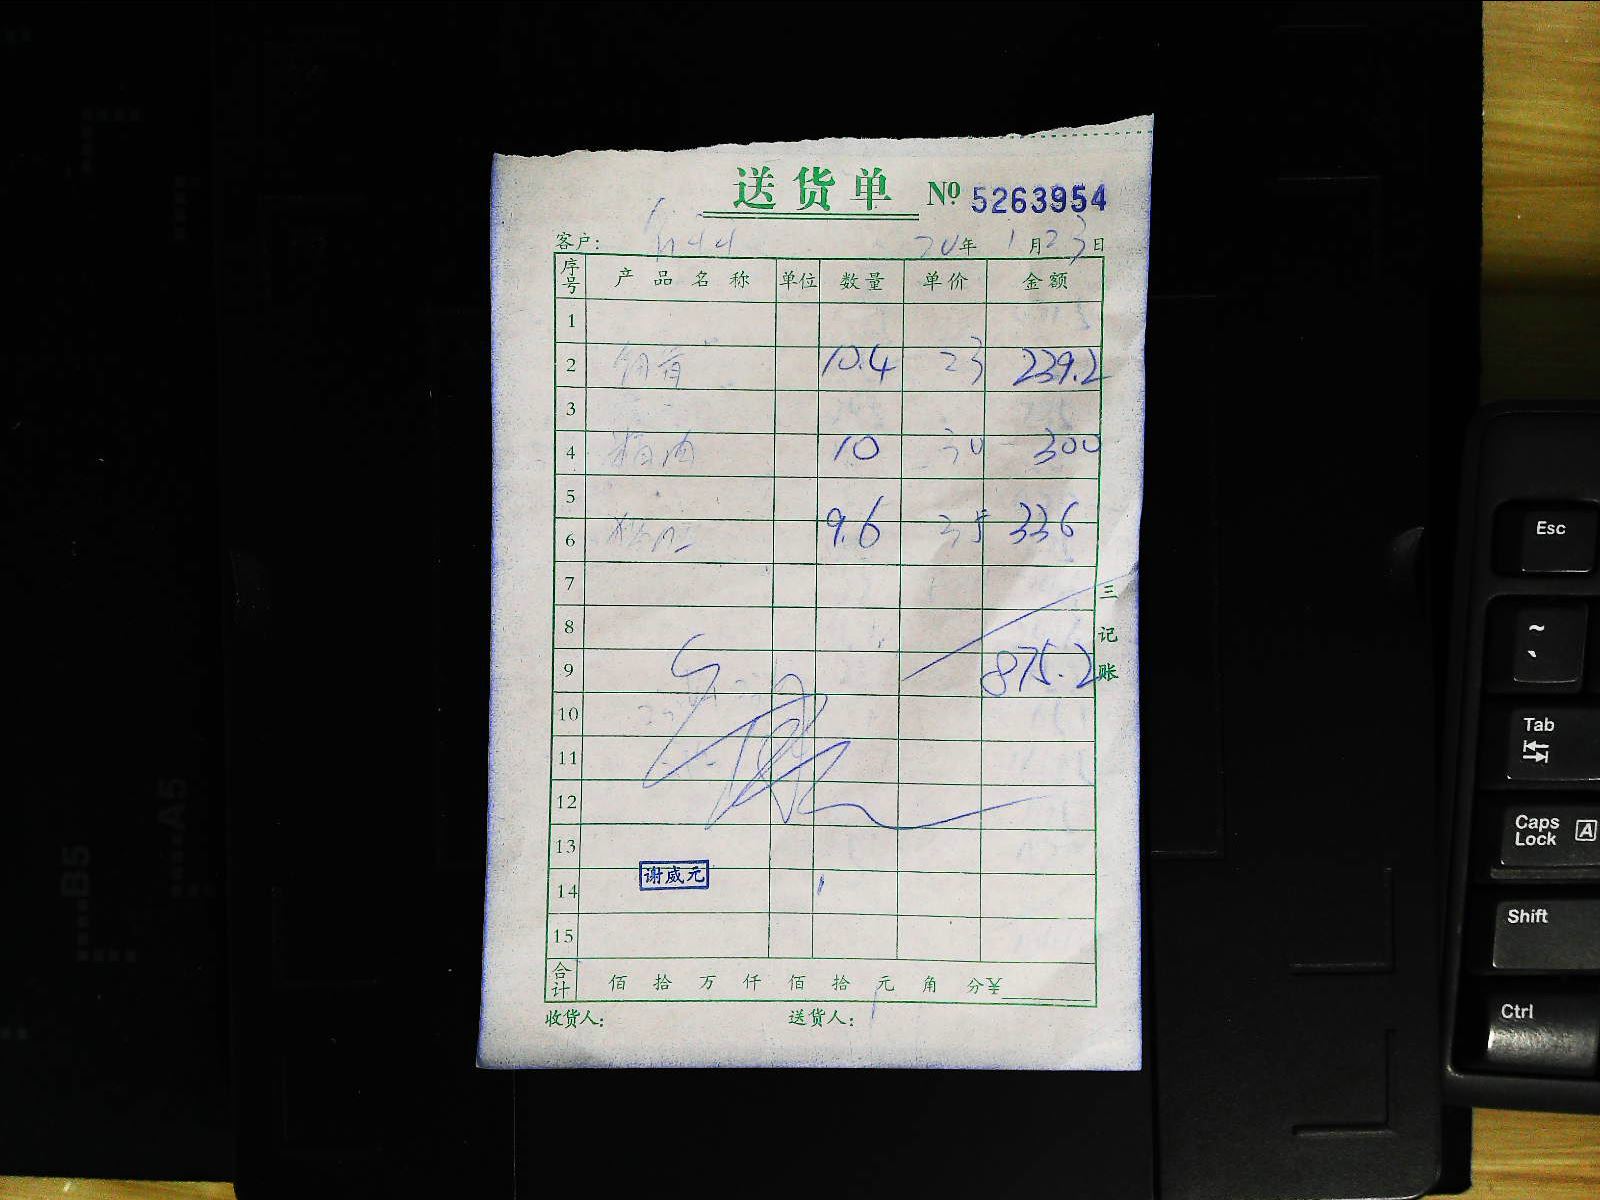 送货单 № 5263954
客户: 20年 1月23日
序号 产品名称 单位 数量 单价 金额
1
2 10.4 23 239.2
3
4 10 30 300
5
6 9.6 35 336
7
8
9 875.2
10
11
12
13
14 谢威元
15
合计 佰 拾 万 仟 佰 拾 元 角 分¥
收货人: 送货人:
三记账
Esc
~
`
Tab
Caps Lock A
Shift
Ctrl
B5
A5